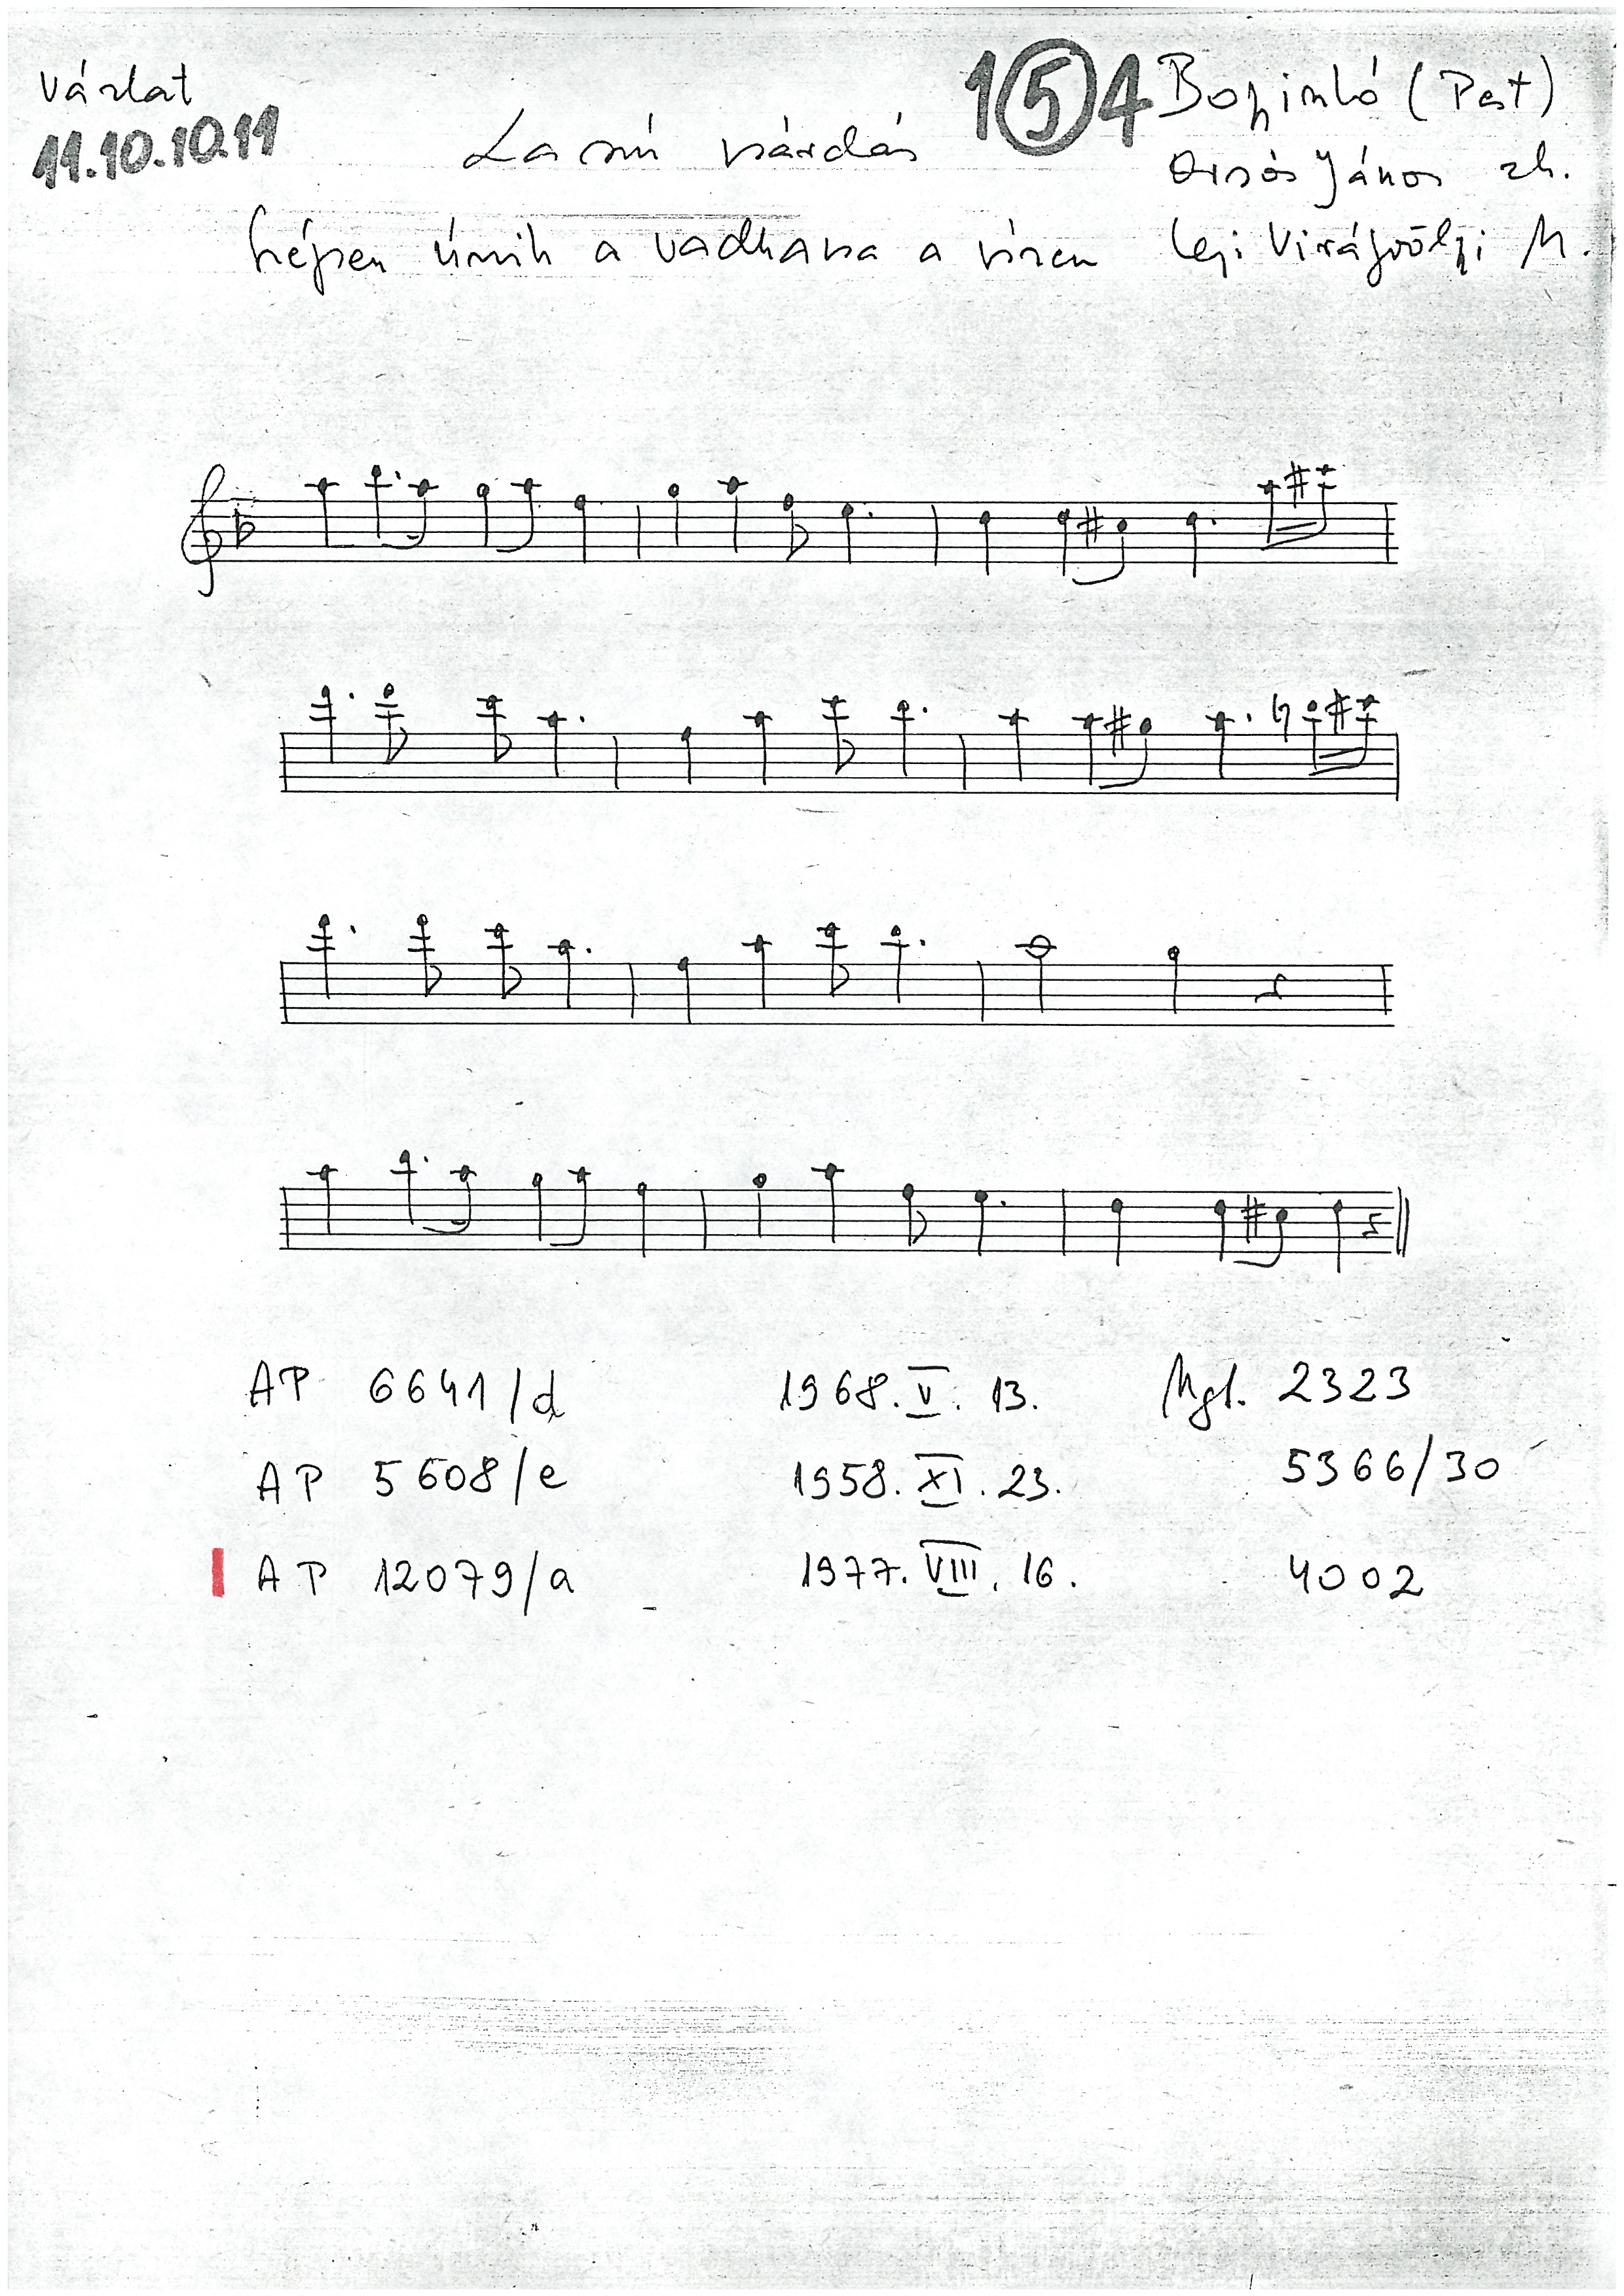 Vázlat
11.10.10.11
154
Lassú csárdás
Szépen úszik a vadkacsa a vizen
Bogyiszló (Pest)
Orsós János zk.
lej: Virágvölgyi M.
AP 6641/d 1968. V. 13. Mgt. 2323
AP 5608/e 1958. XI. 23. 5366/30
AP 12079/a 1977. VIII. 16. 4002